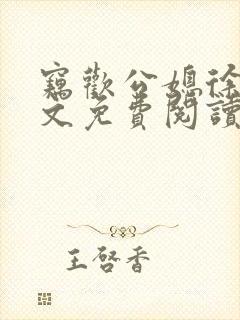 竊歡公媳徐
文免費閱讀
王啓香